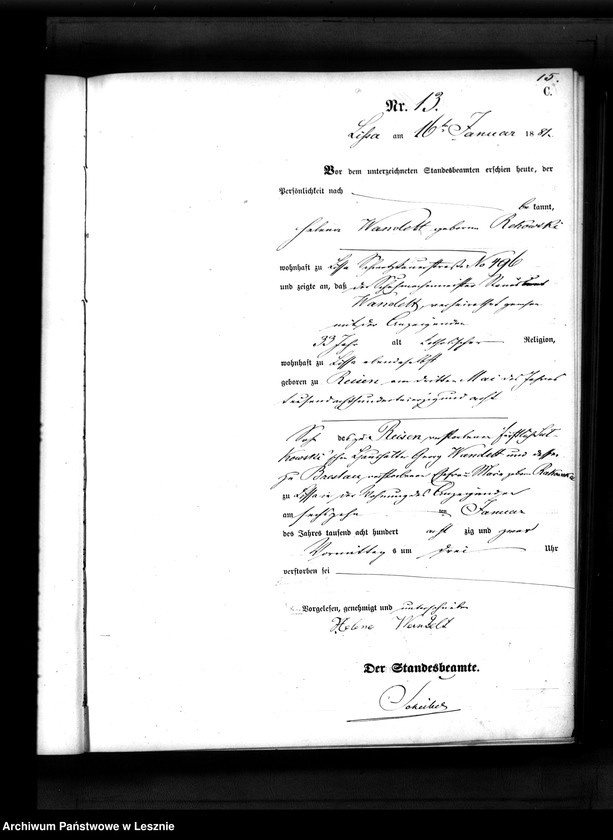 15.
C.
Nr. 13.
Lissa am 16ten Januar 1881.
Vor dem unterzeichneten Standesbeamten erschien heute, der
Persönlichkeit nach
bekannt,
Helene Wandelt geborene Rokowski
wohnhaft zu Lissa No 496
und zeigte an, daß der Schuhmachermeister
Wandelt, verheirathet gewesen
mit der Anzeigenden
33 Jahr alt katholischer Religion,
wohnhaft zu Lissa ebendaselbst
geboren zu Reisen, am dritten Mai des Jahres
tausend achthundert vierzig und acht
Sohn des zu Reisen verstorbenen
Georg Wandelt und dessen
zu Breslau verstorbenen Ehefrau Maria geborne
zu Lissa in der Wohnung des Anzeigenden
am sechszehn ten Januar
des Jahres tausend acht hundert achtzig und zwar
Vormittags um drei Uhr
verstorben sei
Vorgelesen, genehmigt und unterschrieben
Helene Wandelt
Der Standesbeamte.
Archiwum Państwowe w Lesznie